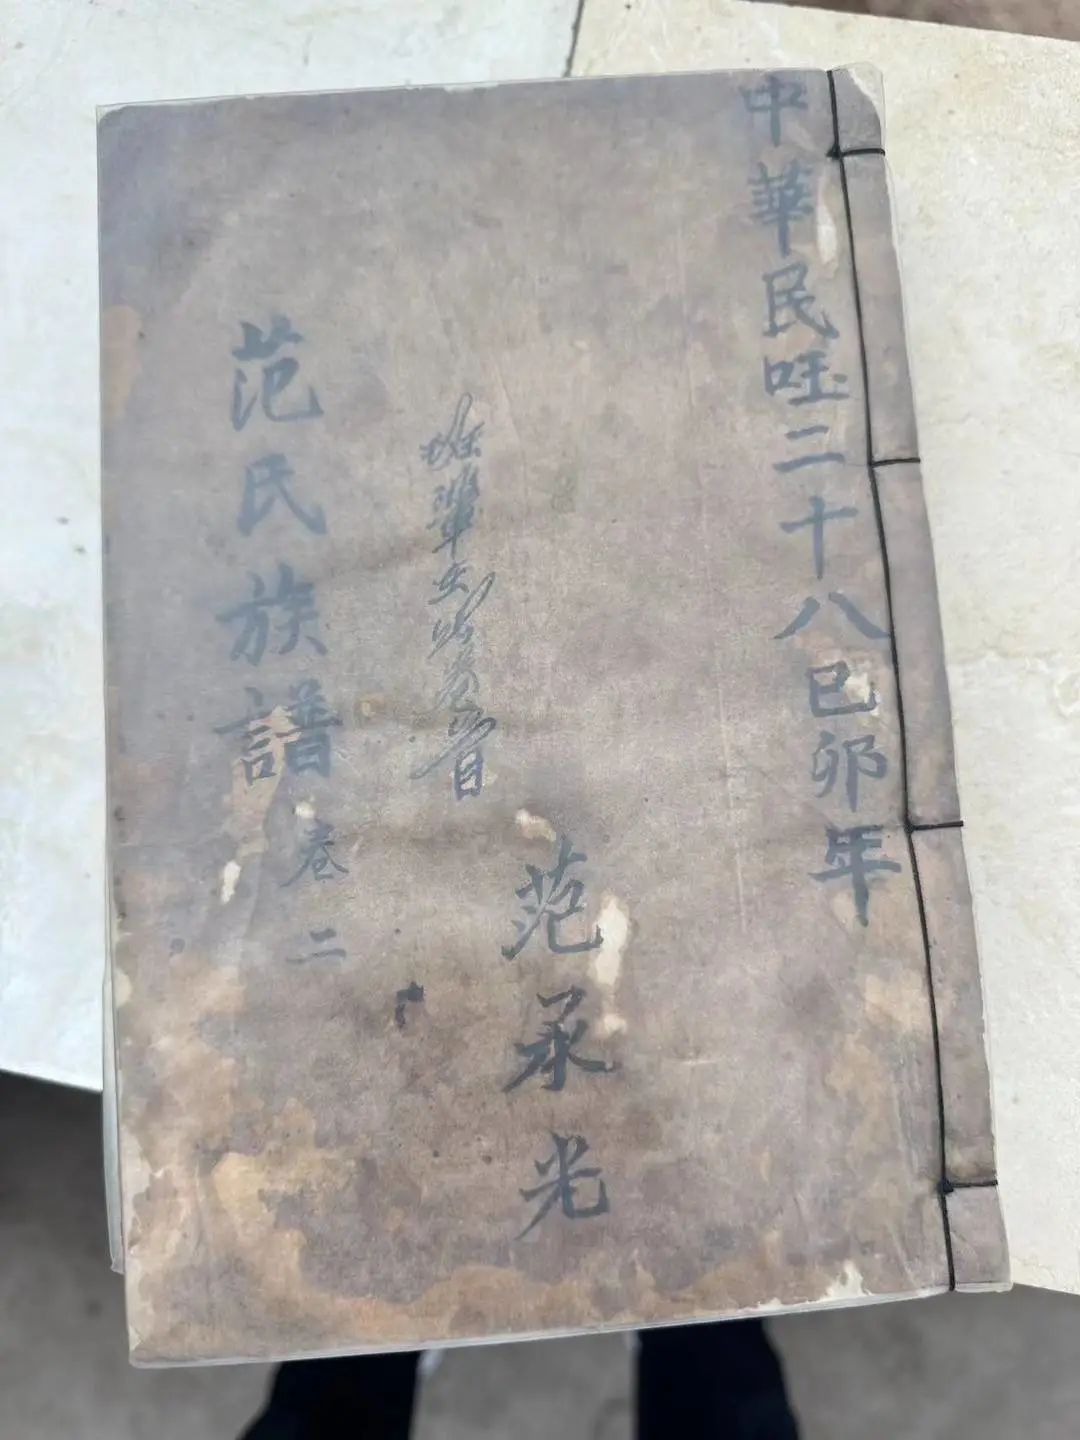 中華民国二十八己卯年
范承光
范氏族譜 卷二